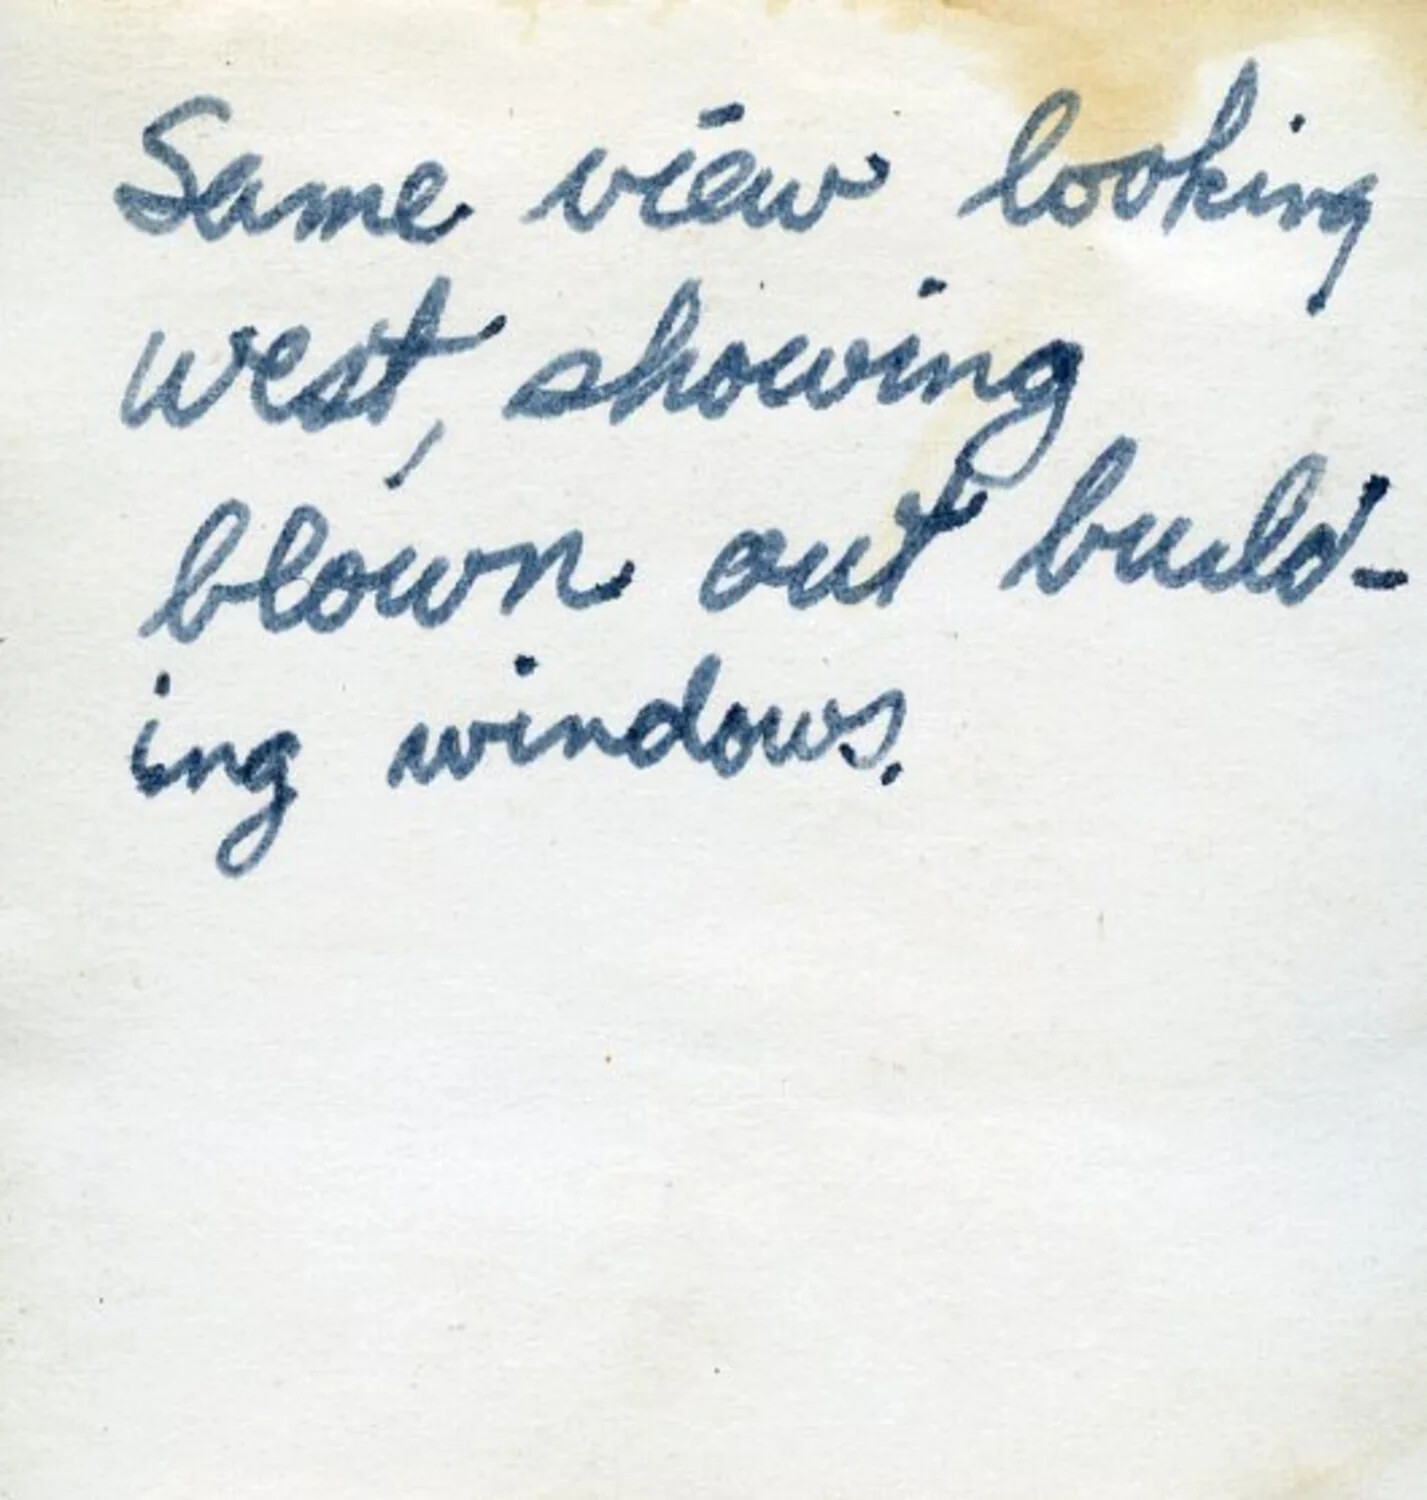 Same view looking
west, showing
blown out build-
ing windows.